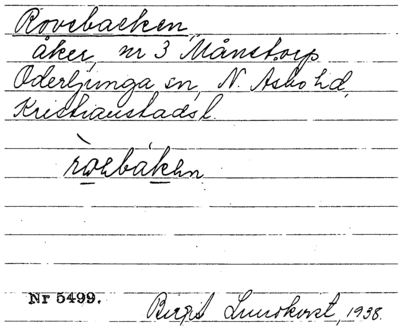 Rovebacken,
åker, nr 3 Månstorp
Oderljunga sn, N. Åsbo hd,
Kristianstads l.
Nr 5499.
Birgit Lundkvist, 1938.